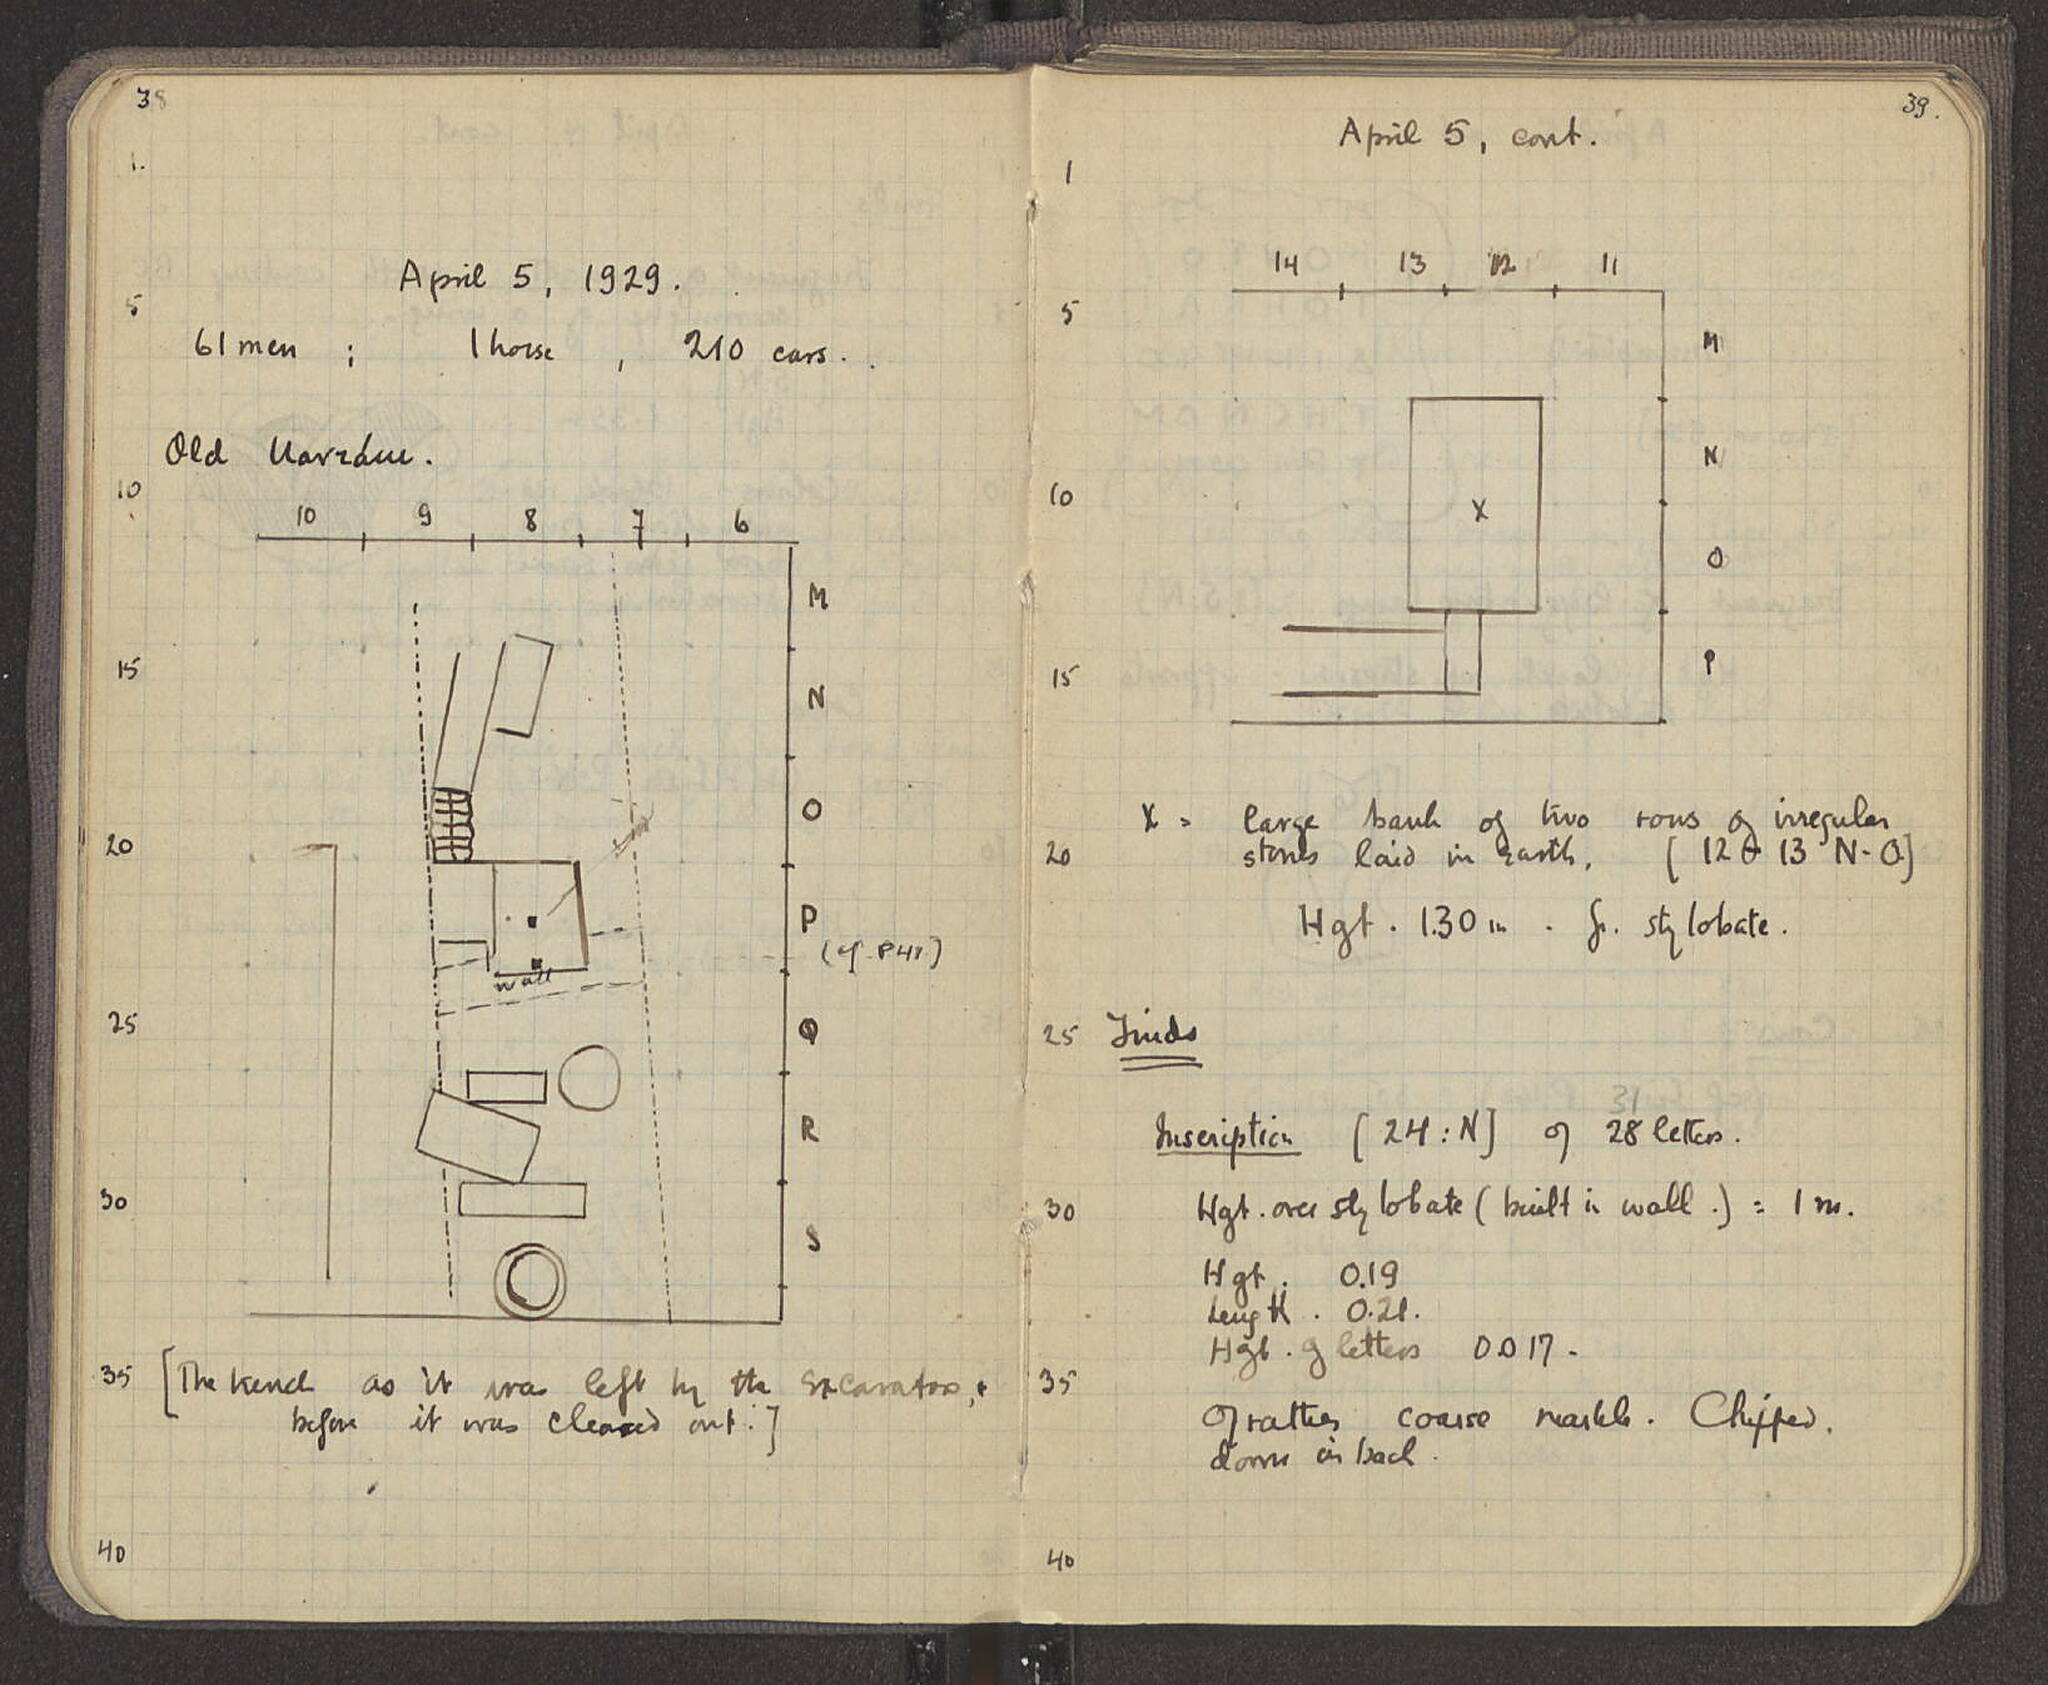 38
1.
April 5, 1929.
5
61 men ; 1 horse , 210 cars.
Old Narthex.
10
10 9 8 7 6
M
15
N
O
20
P
(cf. P 41)
wall
25
Q
R
30
S
35 [The trench as it was left by the excavators, &
before it was cleared out.]
40
39.
April 5, cont.
1
14 13 12 11
5
M
N
10
X
O
P
15
X = large bank of two rows of irregular
20 stones laid in earth. [12 & 13 N-O]
Hgt. 1.30 m. fr. stylobate.
25 Finds
31
Inscription [24:N] of 28 letters.
30 Hgt. over stylobate (built in wall.) = 1 m.
Hgt. 0.19
Length. 0.21.
Hgt. of letters 0.017.
35
Of rather coarse marble. Chipped.
down in back.
40